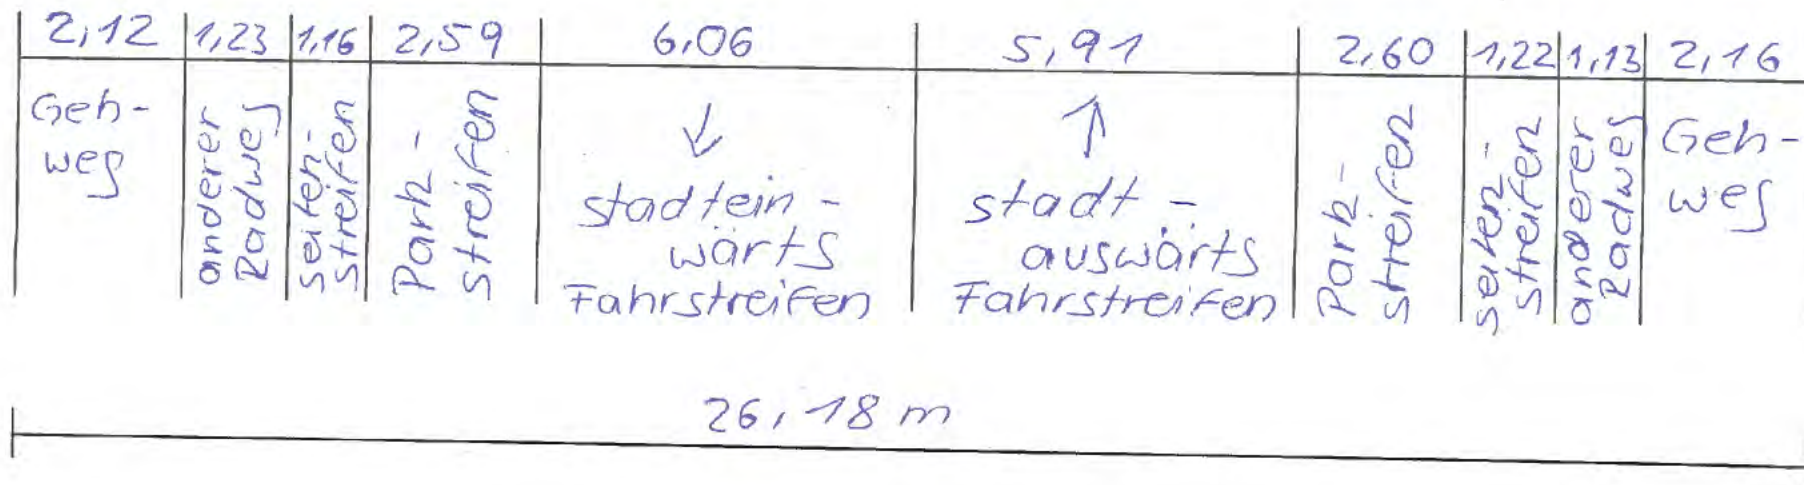 2,12 1,23 1,16 2,59 6,06 5,91 2,60 1,22 1,13 2,16
Geh-
weg
anderer
Radweg
Seiten-
streifen
Park-
streifen
↓
stadtein-
wärts
Fahrstreifen
↑
stadt-
auswärts
Fahrstreifen
Park-
streifen
Seiten-
streifen
anderer
Radweg
Geh-
weg
26,18 m